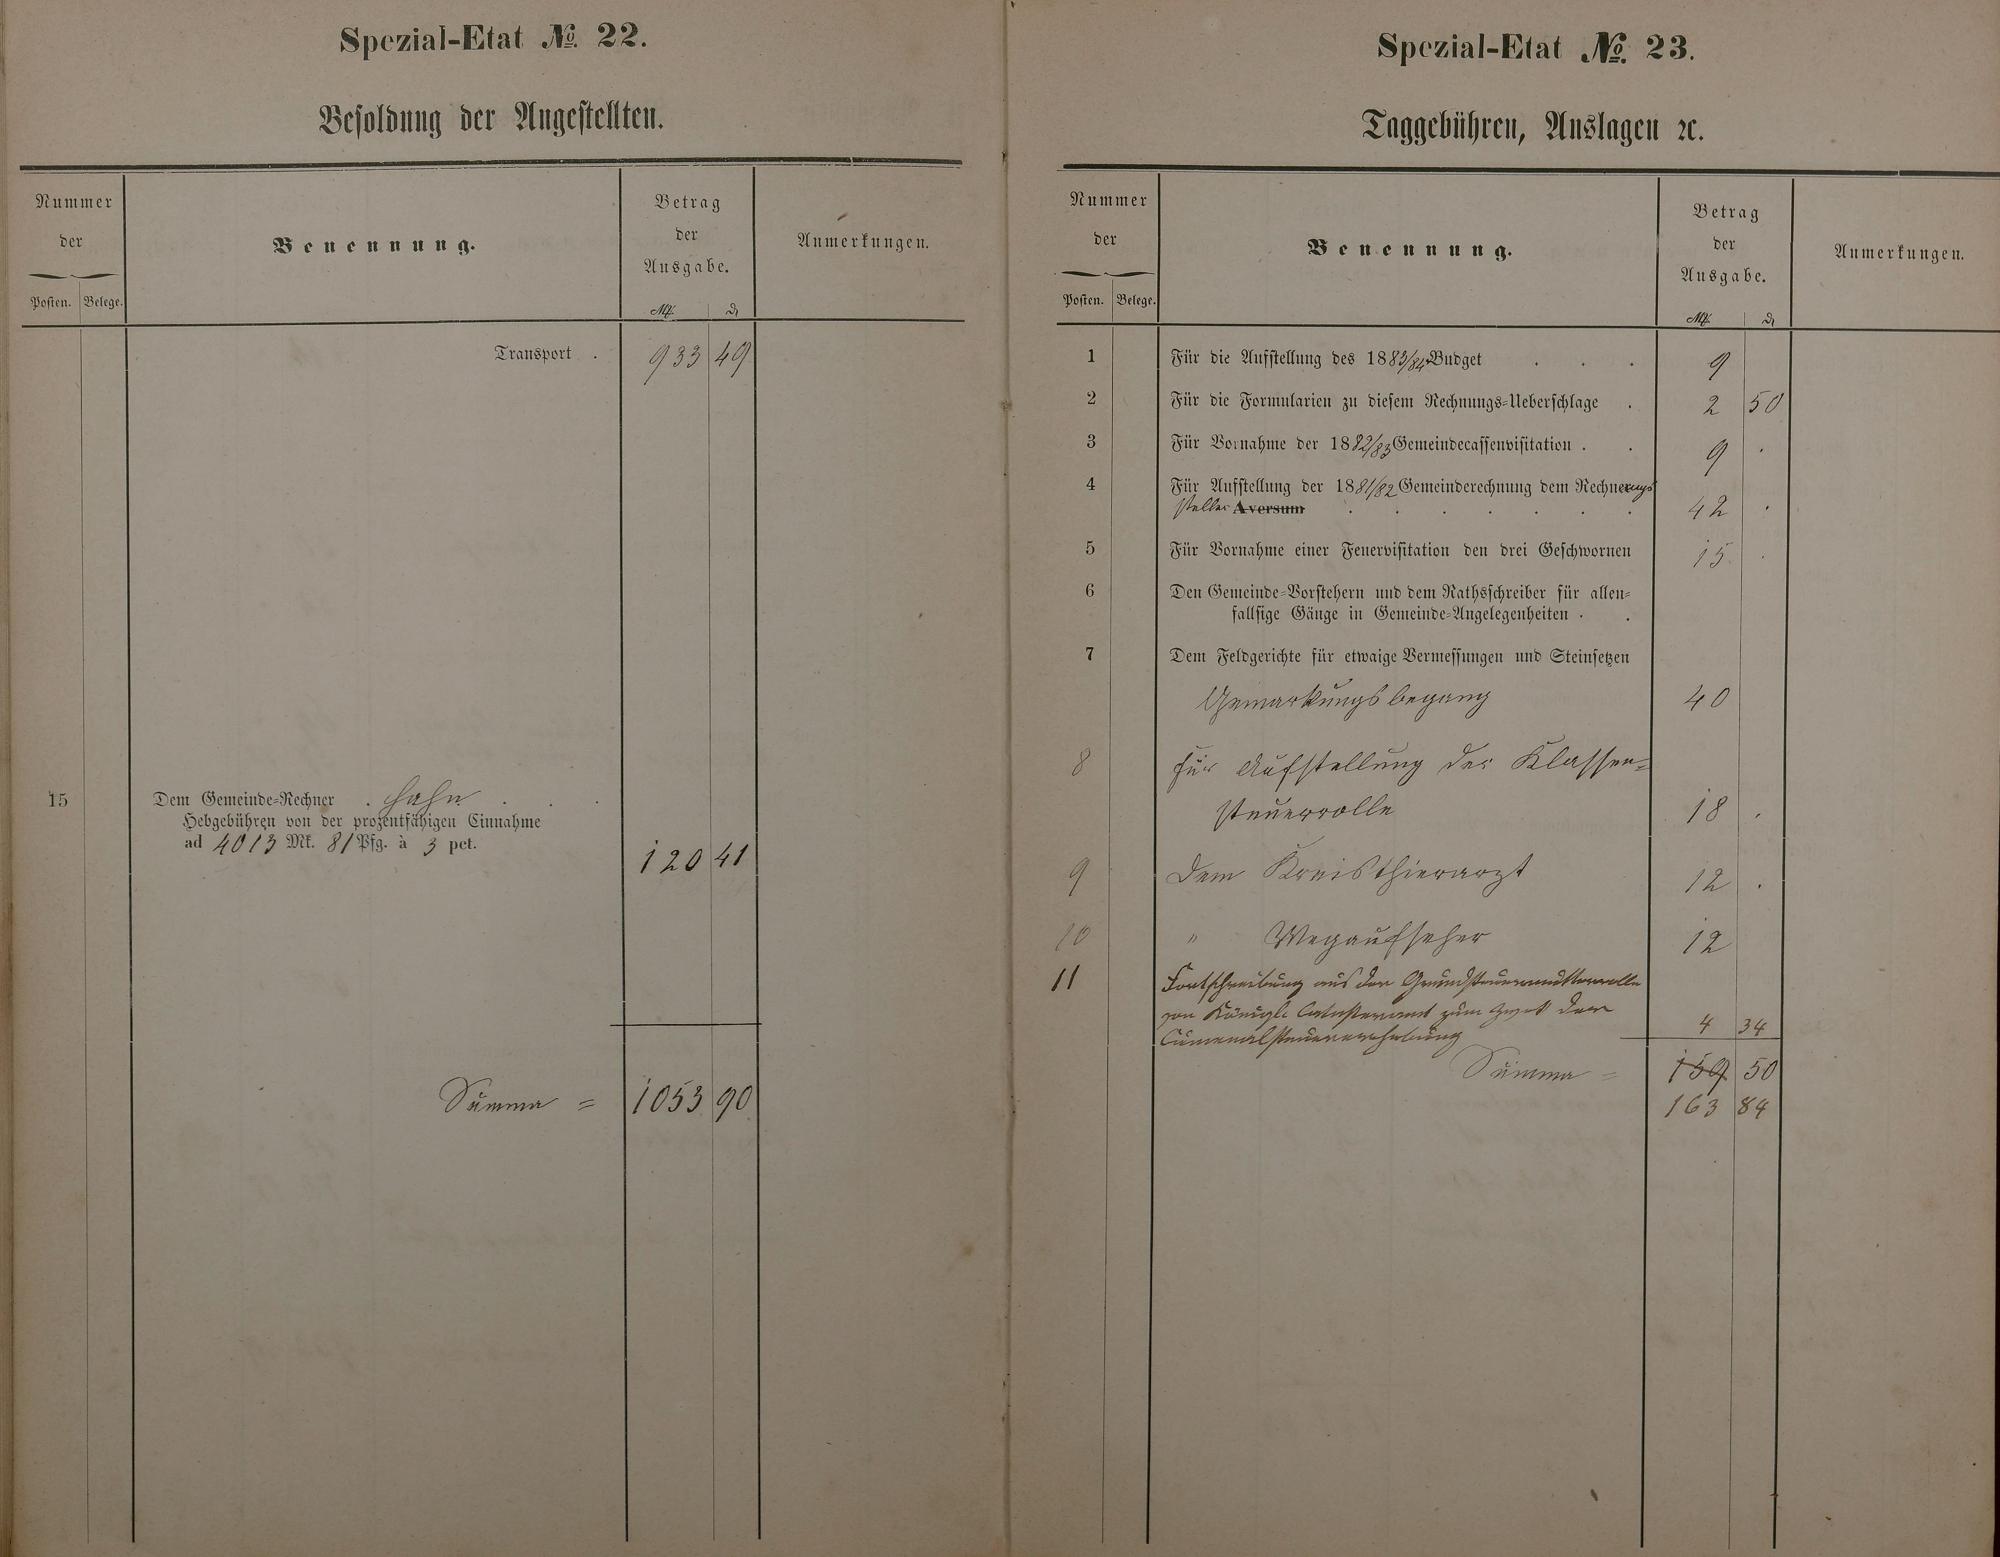 Spezial-Etat № 22.
Besoldung der Angestellten.
Nummer
der
Posten. Belege.
Benennung.
Betrag
der
Ausgabe.
Mk. ₰
Anmerkungen.
Transport . 933 49
15 Dem Gemeinde-Rechner . Hahn . . .
Hebgebühren von der prozentfähigen Einnahme
ad 4013 Mk. 81 Pfg. à 3 pct. 120 41
Summa = 1053 90
Spezial-Etat № 23.
Taggebühren, Auslagen ꝛc.
Nummer
der
Posten. Belege.
Benennung.
Betrag
der
Ausgabe.
Mk. ₰
Anmerkungen.
1 Für die Aufstellung des 1883/84 Budget . . . 9
2 Für die Formularien zu diesem Rechnungs-Ueberschlage . 2 50
3 Für Vornahme der 1882/83 Gemeindecassenvisitation . . 9 .
4 Für Aufstellung der 1881/82 Gemeinderechnung dem Rechnungs
steller Aversum . . . . . . . 42 .
5 Für Vornahme einer Feuervisitation den drei Geschwornen 15 .
6 Den Gemeinde-Vorstehern und dem Rathsschreiber für allen-
fallsige Gänge in Gemeinde-Angelegenheiten . .
7 Dem Feldgerichte für etwaige Vermessungen und Steinsetzen
Gemarkungsbegang 40
8 Für Aufstellung der Klassen-
steuerrolle 18 .
9 Dem Kreisthierarzt 12 .
10 " Wegaufseher 12
11 Fortschreibung aus der Grundsteuermutterrolle
von Königl. Catasteramt zum Zweck der
4 34
Summa = 159 50
163 84